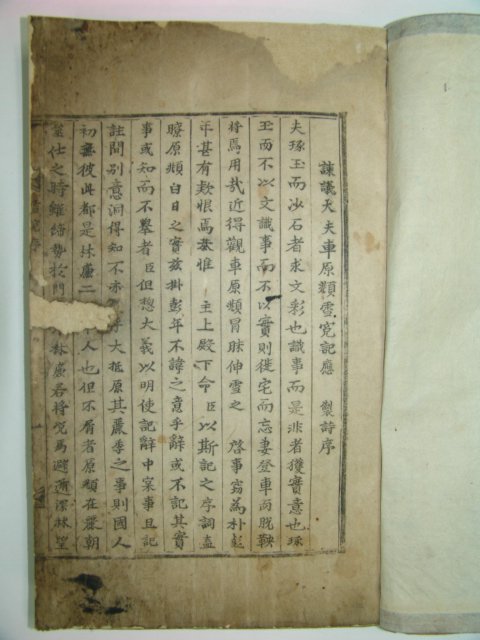 諫議大夫車原頫雪寃記應 製詩序
夫琢玉而沙石者求文彩也識事而是非者獲實意也琢
玉而不以文識事而不以實則徙宅而忘妻登車而脫鞅
將焉用哉近得觀車原頫冒昧伸雪之 啓事竊為朴彭
年甚有欺恨焉恭惟 主上殿下命臣以斯記之序詞盍
瞭原頫白日之實玆掛彭年不諱之意乎辭或不記其實
事或知而不擧者臣但惣大義以明使記辭中寀事且記
註間別意洞得知不亦 大抵原其麗季之事則國人
初無彼此都是林廉二 人也但不屑者原頫在麗朝
筮仕之時雖締勢於門 林廉若將浼焉避逝深林望